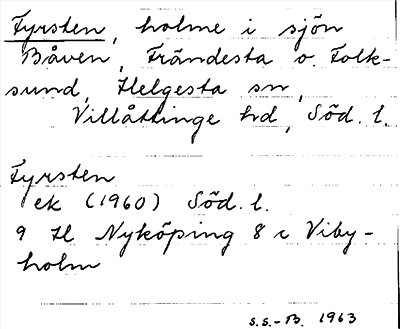 Fyrsten, holme i sjön
Båven, Frändesta o. Folk-
sund, Helgesta sn,
Villåttinge hd, Söd. l.
Fyrsten
ek (1960) Söd. l.
9 H Nyköping 8 c Viby-
holm
S.S.-B. 1963